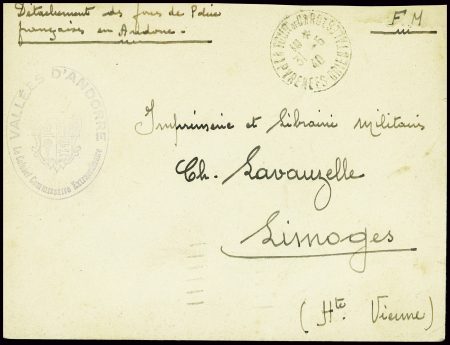 Détachement des forces de Police
françaises en Andorre.
F M
LA TOUR DE CAROL
PYRENEES-ORIENTLES
40
VALLÉES D'ANDORRE
Le Colonel Commissaire Extraordinaire
Imprimerie et Librairie militaire
Ch. Lavauzelle
Limoges
(Hte Vienne)